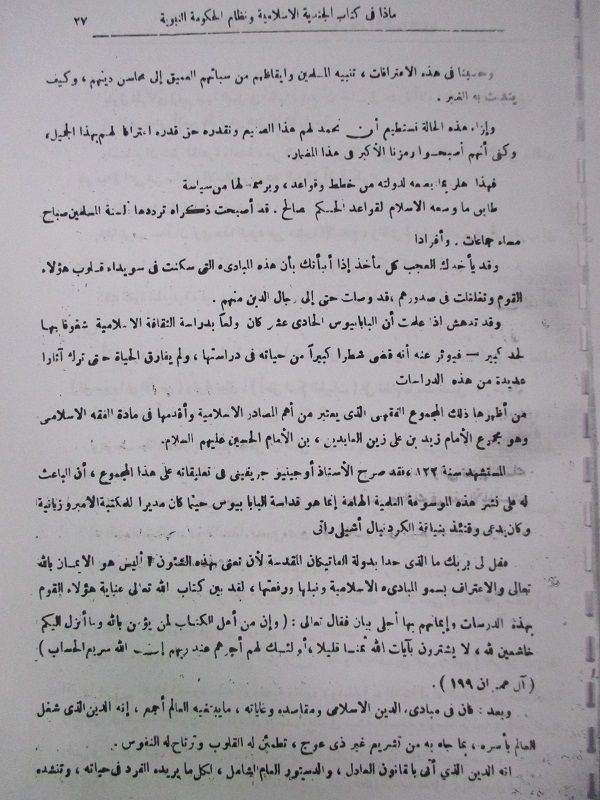 ماذا فى كتاب الجندية الاسلامية ونظام الحكومة النبوية ٢٧
وحسبنا فى هذه الاعترافات ، تنبيه المسلمين وايقاظهم من سباتهم العميق إلى محاسن دينهم ، وكيف
يتشبث به الغير .
وإزاء هذه الحالة نستطيع أن نحمد لهم هذا الصنيع ونقدره حق قدره اعترافا لهم بهذا الجميل ،
وكفى أنهم أصبحوا رمزنا الأكبر فى هذا المضمار .
فهذا بما يضعه لدولته من خطط وقواعد ، ويرسمه لها من سياسة
طابق ما وضعه الاسلام لقواعد الحكم الصالح . قد أصبحت ذكراه ترددها ألسنة المسلمين صباح
مساء جماعات . وأفرادا
وقد يأخذك العجب كل مأخذ إذا أنبأتك بأن هذه المبادىء التى سكنت فى سويداء قلوب هؤلاء
القوم وتغلغلت فى صدورهم ،قد وصلت حتى إلى رجال الدين منهم .
وقد تدهش اذا علمت أن البابا بيوس الحادى عشر كان ولعاً بدراسة الثقافة الاسلامية شغوفا بها
لحد كبير — فيؤثر عنه أنه قضى شطرا كبيراً من حياته فى دراستها ، ولم يفارق الحياة حتى ترك آثارا
عديدة من هذه الدراسات
من أظهرها ذلك المجموع الفقهى الذى يعتبر من أهم المصادر الاسلامية وأقدمها فى مادة الفقه الاسلامى
وهو مجموع الأمام زيد بن على زين العابدين ، بن الأمام الحسين عليهم السلام .
المستشهد سنة ١٢٢ ،فقد صرح الأستاذ أوجينيو جريفينى فى تعليقاته على هذا المجموع ، أن الباعث
له على نشر هذه الموسوعة العلمية الهامة إنما هو قداسة البابا بيوس حينما كان مديرا للمكتبة الامبروزيانية
وكان يدعى وقتئذ بنيافة الكردنيال أشيلى راتى
فقل لى بربك ما الذى حدا بدولة الفاتيكان المقدسة لأن تعنى بهذه الشئون ؟ أليس هو الايمان بالله
تعالى والاعتراف بسمو المبادىء الاسلامية ونبلها ورفعتها ، لقد بين كتاب الله تعالى عناية هؤلاء القوم
بهذه الدرسات وإيمانهم بها أحلى بيان فقال تعالى : ( وإن من أهل الكتاب لمن يؤمن بالله وما أنزل اليكم
خاشعين لله ، لا يشترون بآيات الله ثمنا قليلا ، أولئك لهم أجرهم عند ربهم إن الله سريع الحساب )
( آل عمران ١٩٩ ) .
وبعد : فان فى مبادىء الدين الاسلامى ومقاصده وغاياته ، ما يبتغيه العالم أجمع ، إنه الدين الذى شغل
العالم بأسره ، بما جاء به من تشريع غير ذى عوج ، تطمئن له القلوب وترتاح له النفوس .
انه الدين الذي أتى بالقانون العادل ، والدستور العام الشامل ، لكل ما يريده الفرد فى حياته ، وتنشده